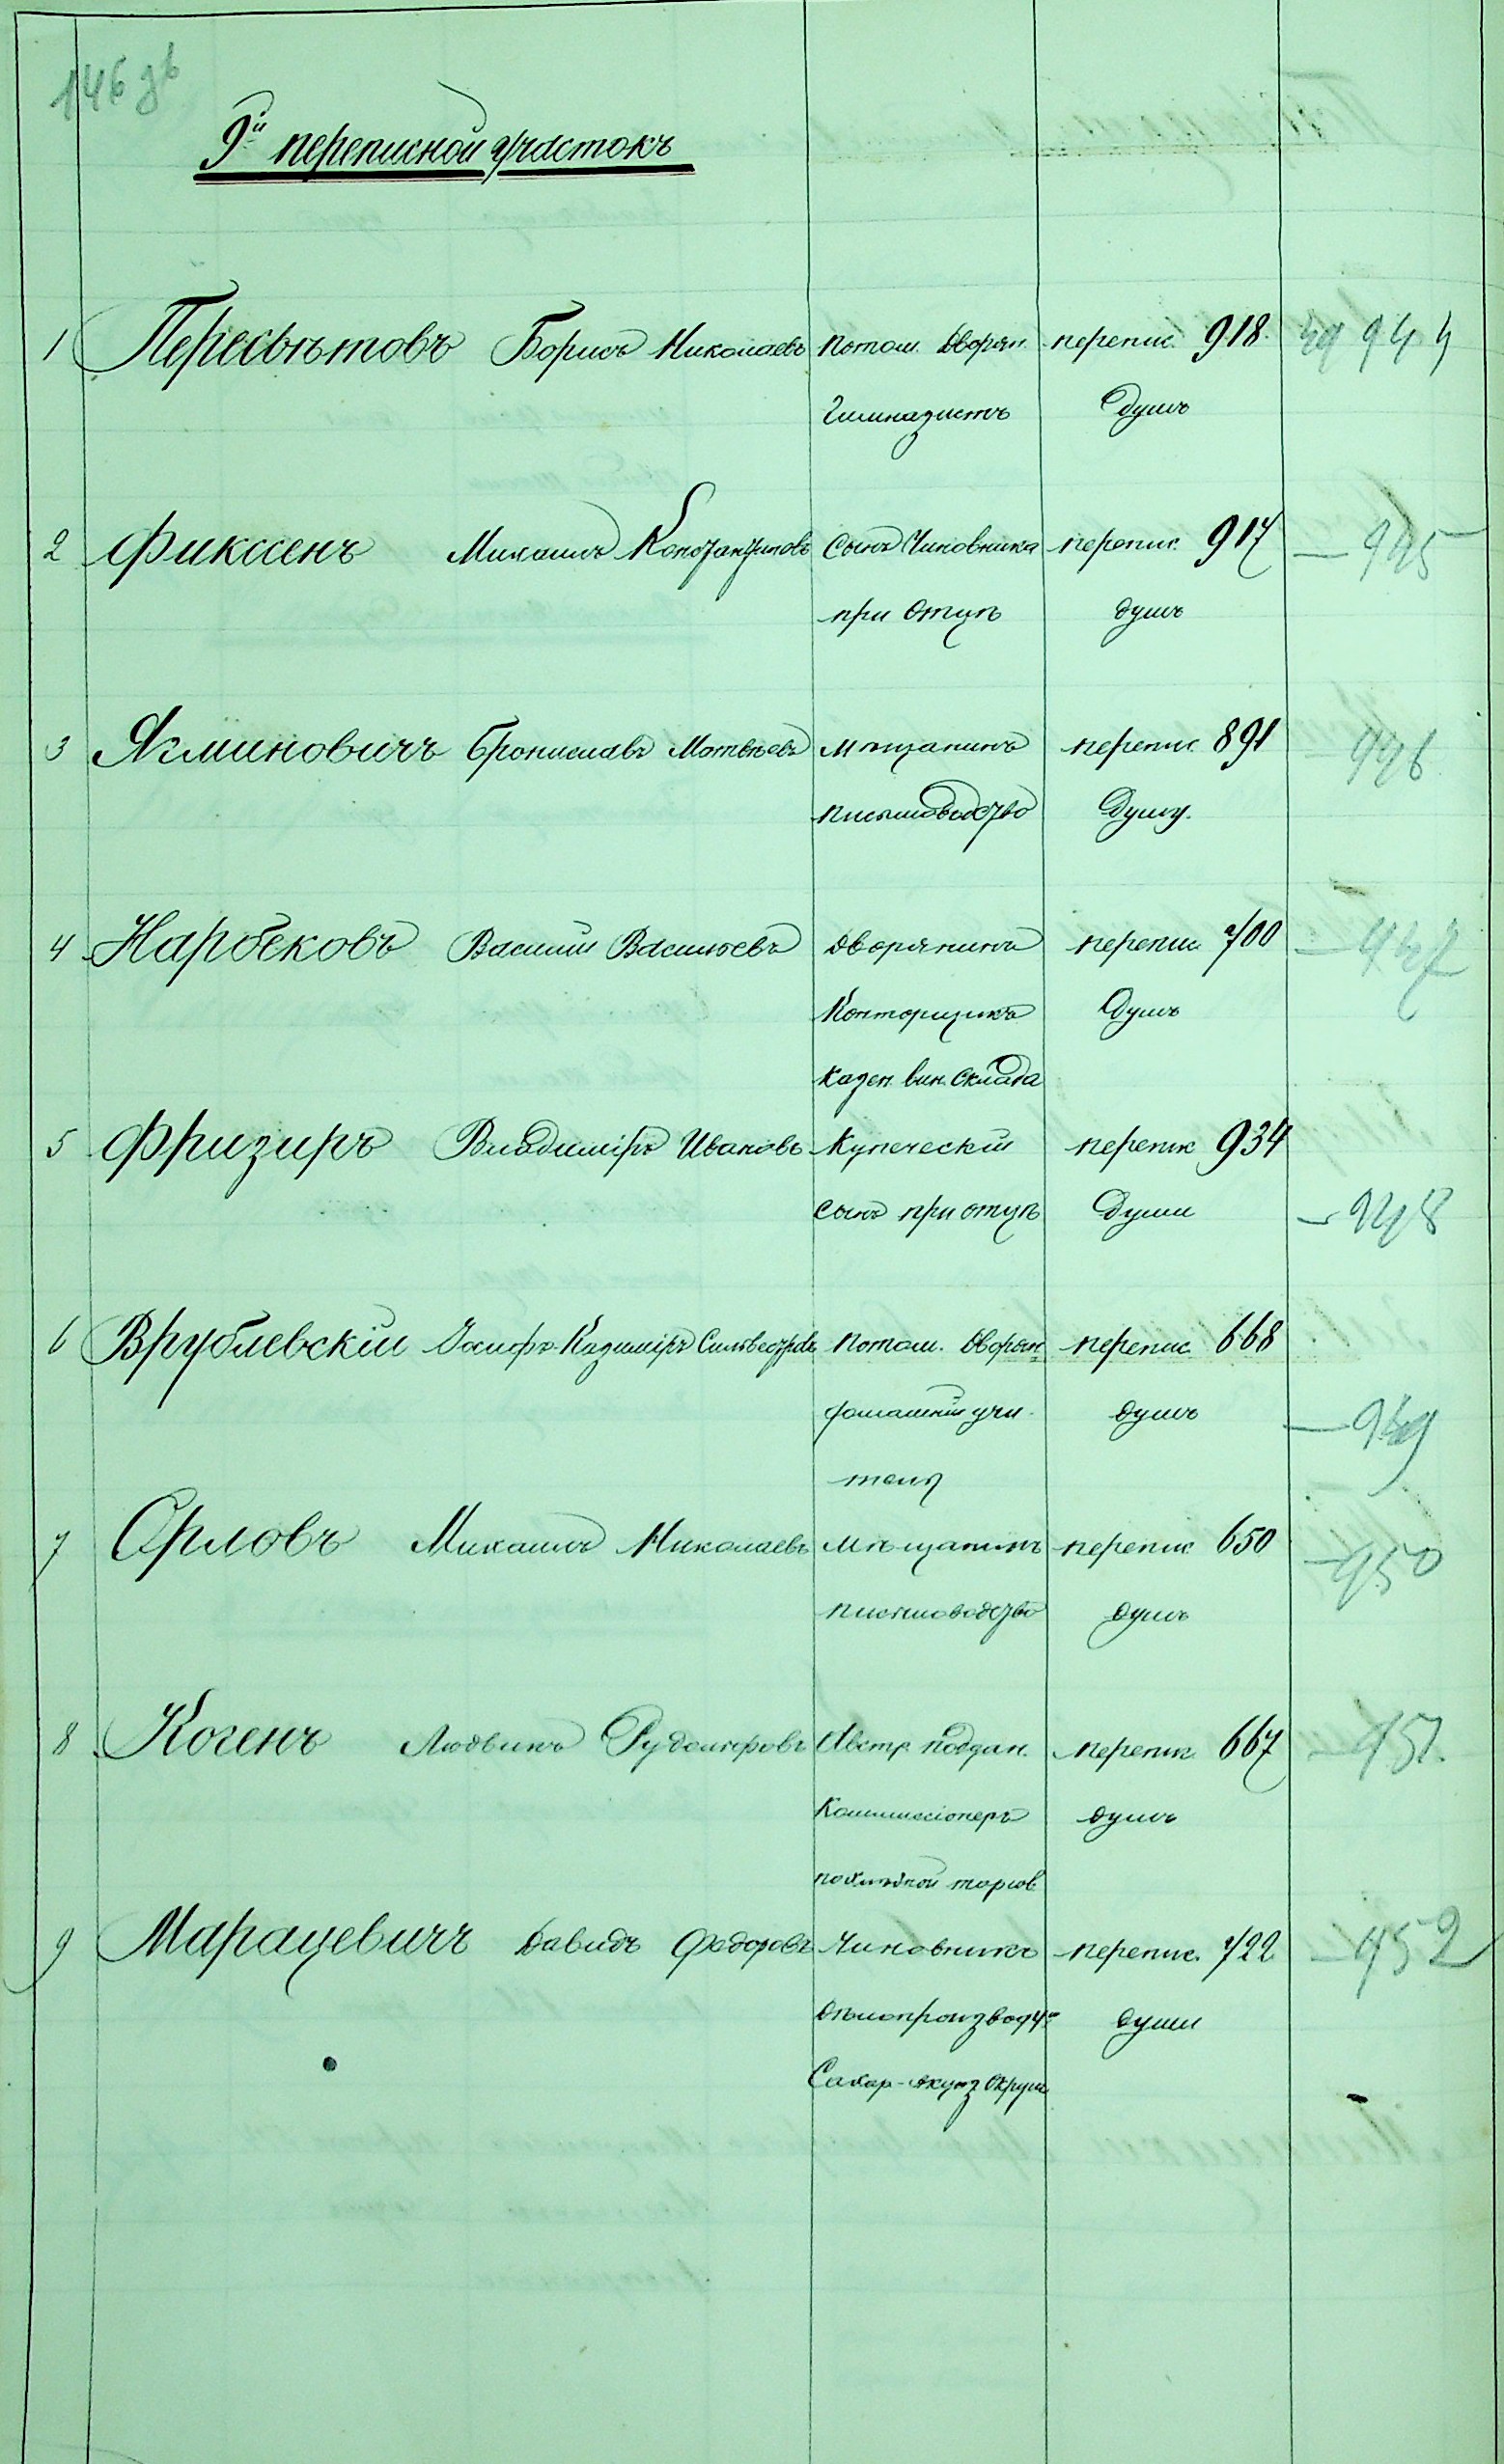 9й переписной участокъ
1 Пересвѣтовъ Борисъ Николаевъ Потом. Дворян. перепис. 918 944
Гимназистъ душъ
2 Фиксенъ Михаилъ Константиновъ Сынъ Чиновника перепис. 917 — 945
при Отцѣ душъ
3 Ягминовичъ Брониславъ Матвѣевъ Мѣщанинъ перепис. 891 — 946
письмоводство Душу.
4 Нарбековъ Василій Васильевъ Дворянинъ перепис. 700 — 947
Конторщикъ Душъ
Казен. вин. склада
5 Фризиръ Владиміръ Ивановъ Купеческій перепис 934
сынъ при отцѣ Души — 948
6 Врублевскій Іосифъ-Казиміръ Сильвестров Потом. Дворян перепис. 668
домашній учи- душъ — 949
тель
7 Орловъ Михаилъ Николаевъ Мѣщанинъ перепис 650 — 950
письмоводство душъ
8 Когенъ Людвикъ Рудольфовъ Австр. поддан. перепис. 667 — 951.
Коммиссіонеръ душъ
по хлѣбной торгов
9 Марацевичъ Давидъ Федоровъ Чиновникъ перепис. 722 — 952
Дѣлопроизвод души
Сахар-акциз Округа